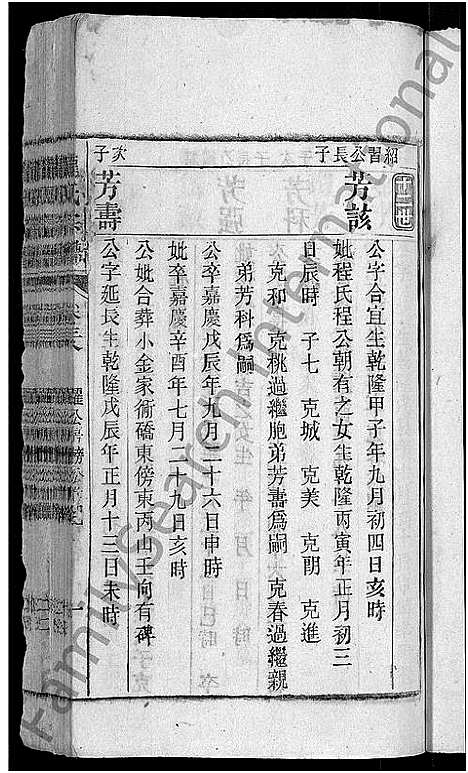 紹習公長子
芳該
公字合宜生乾隆甲子年九月初四日亥時
妣程氏程公朝有之女生乾隆丙寅年正月初三
日辰時 子七 克城 克美 克明 克進
克和 克桃過繼胞弟芳壽爲嗣 克春過繼親
弟芳科爲嗣
公卒嘉慶戊辰年九月二十六日申時
妣卒嘉慶辛酉年七月二十九日亥時
公妣合葬小金家衖礄東傍東丙山壬向有碑
次子
芳壽
公字延長生乾隆戊辰年正月十三日未時
FamilySearch International